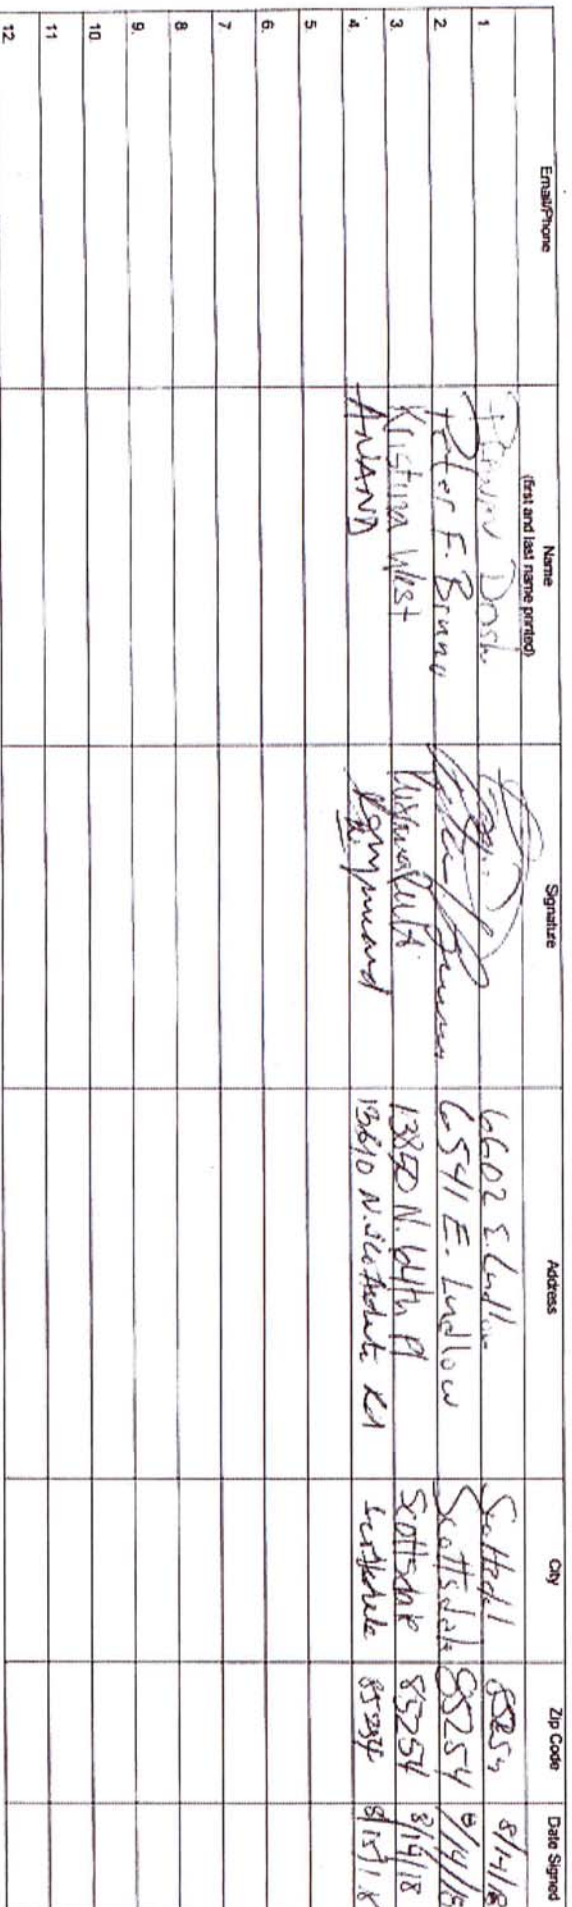 Email/Phone Name (first and last name printed) Signature Address City Zip Code Date Signed
1. 6602 E. Ludlow 8/14/18
2. Peter F. Bruno 6541 E. Ludlow Scottsdale 85254 8/14/18
3. Kristina West 13850 N. 64th Pl Scottsdale 85254 8/14/18
4. ANAND 13610 N. Scottsdale Rd Scottsdale 85254 8/15/18
5.
6.
7
8
9.
10.
11
12.